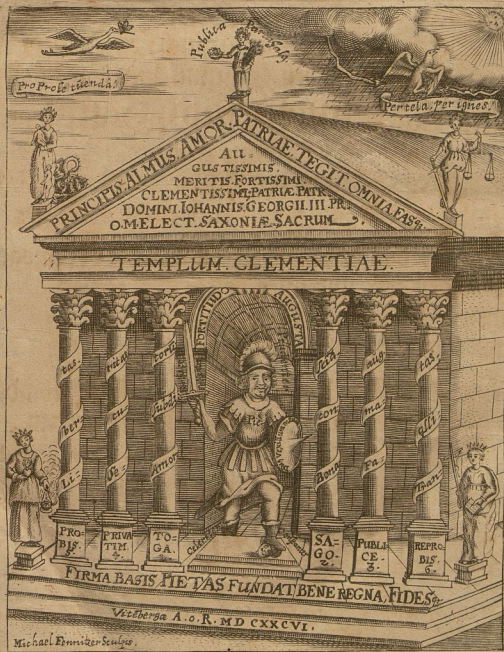 Publica
Pro Prole tuendâ.
Per tela, per ignes.
PRINCIPIS ALMUS AMOR PATRIAE TEGIT OMNIA FASQ;
AU-
GUSTISSIMIS.
MERITIS. FORTISSIMI
CLEMENTISSIMI. PATRIÆ. PATR
DOMINI. IOHANNIS. GEORGII. III. PR
O. M. ELECT. SAXONIÆ SACRUM
TEMPLUM. CLEMENTIAE.
FORTITUDO AUGUSTA
tas. ritas tori
iber cu Subdi
Li Se Amor
aug tas.
con ma qvilli
Bona Fa Tran
PRO-
BIS.
1.
PRIVA
TIM.
4.
TO-
GA.
SA-
GO.
2.
PUBLI
CE.
3.
REPRO
BIS.
6.
FIRMA BASIS PIETAS FUNDAT BENE REGNA FIDESQ;
Viteberga A. o. R. MD CXXCVI.
Michael Fennitzer Sculps.